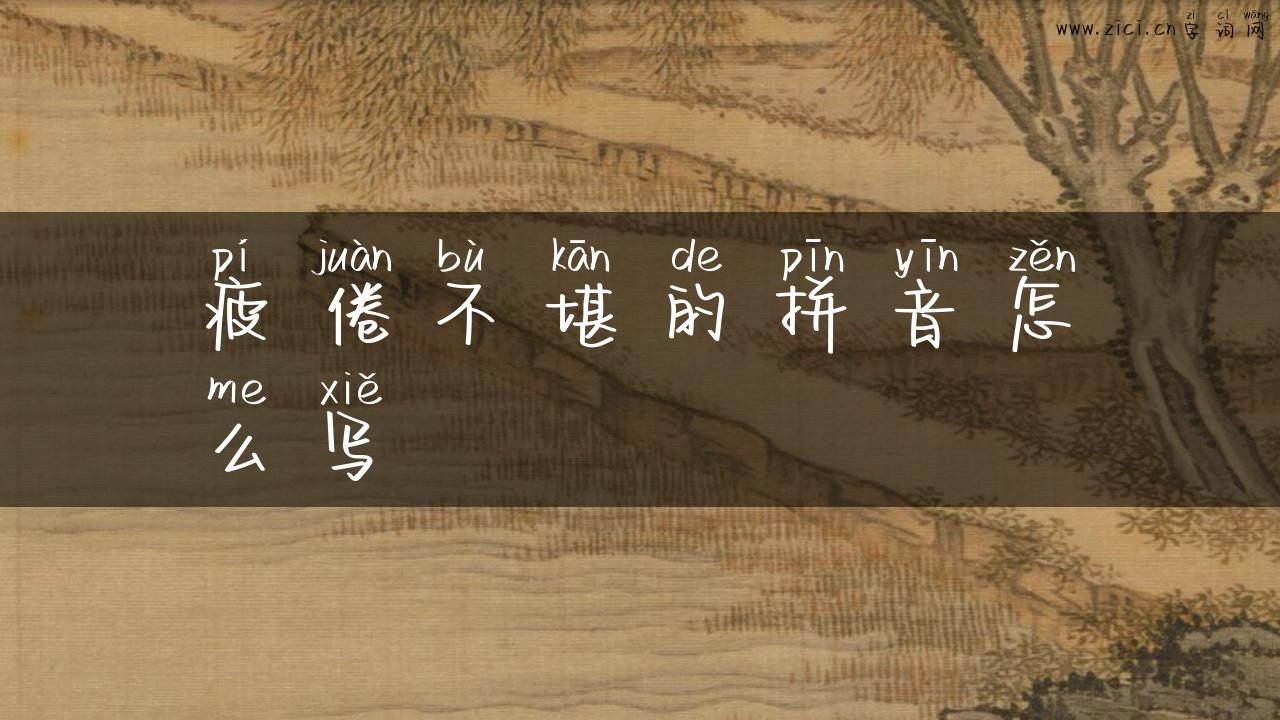 zì cí wǎng
www.zici.cn 字词网
pí juàn bù kān de pīn yīn zěn
疲倦不堪的拼音怎
me xiě
么写